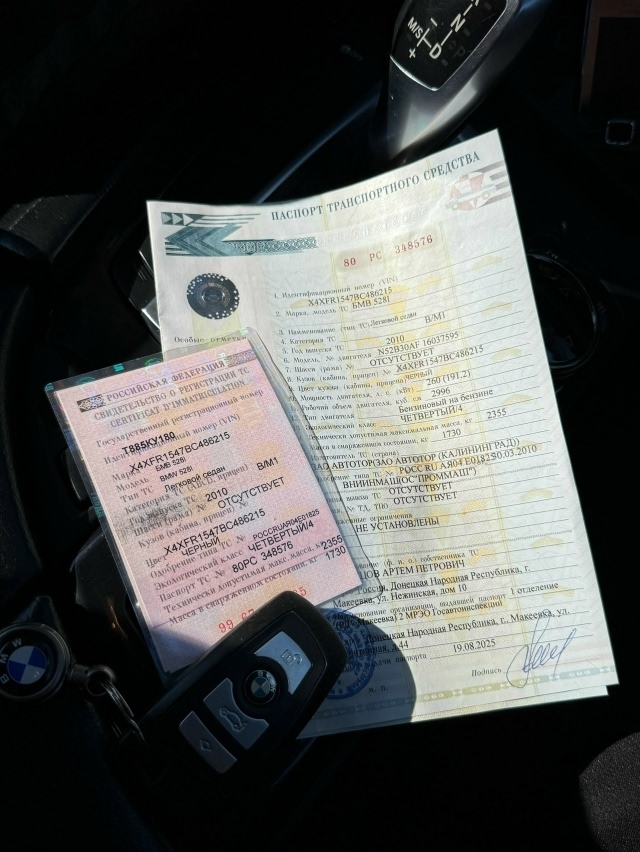 M/S
+
D
N
ПАСПОРТ ТРАНСПОРТНОГО СРЕДСТВА
80 РС 348576
1. Идентификационный номер (VIN) X4XFR1547BC486215
2. Марка, модель ТС БМВ 528I
3. Наименование (тип ТС) Легковой седан
4. Категория ТС B/M1
5. Год выпуска ТС 2010
6. Модель, № двигателя N52B30AF 16037595
7. Шасси (рама) № ОТСУТСТВУЕТ
8. Кузов (кабина, прицеп) № X4XFR1547BC486215
9. Цвет кузова (кабины, прицепа) ЧЕРНЫЙ
Мощность двигателя, л. с. (кВт) 260 (191,2)
Рабочий объем двигателя, куб. см 2996
Бензиновый на бензине
Экологический класс ЧЕТВЕРТЫЙ/4
Технически допустимая максимальная масса, кг 2355
Масса в снаряженном состоянии, кг 1730
ЗАО АВТОТОР (КАЛИНИНГРАД)
ОТСУТСТВУЕТ
ОТСУТСТВУЕТ
№ ТД, ТПО
НЕ УСТАНОВЛЕНЫ
(ф. и. о.) собственника ТС
АРТЕМ ПЕТРОВИЧ
Россия, Донецкая Народная Республика, г.
Макеевка, ул. Нежинская, дом 10
Наименование организации, выдавшей паспорт 1 отделение
(г. Макеевка) 2 МРЭО Госавтоинспекции
Донецкая Народная Республика, г. Макеевка, ул.
д.44
выдачи паспорта 19.08.2025
Подпись
М. П.
Особые отметки
РОССИЙСКАЯ ФЕДЕРАЦИЯ
СВИДЕТЕЛЬСТВО О РЕГИСТРАЦИИ ТС
CERTIFICAT D'IMMATRICULATION
Государственный регистрационный номер
T885KY180
Идентификационный номер (VIN)
X4XFR1547BC486215
Марка БМВ 528I
Модель BMW 528I
Тип ТС Легковой седан
Категория ТС B/M1
Год выпуска ТС 2010
Шасси (рама) № ОТСУТСТВУЕТ
Кузов (кабина, прицеп) №
X4XFR1547BC486215
Цвет ЧЕРНЫЙ
Одобрение типа ТС №
Экологический класс ЧЕТВЕРТЫЙ/4
Паспорт ТС 80РС 348576
Технически допустимая макс. масса, кг 2355
Масса в снаряженном состоянии, кг 1730
99 67
BMW